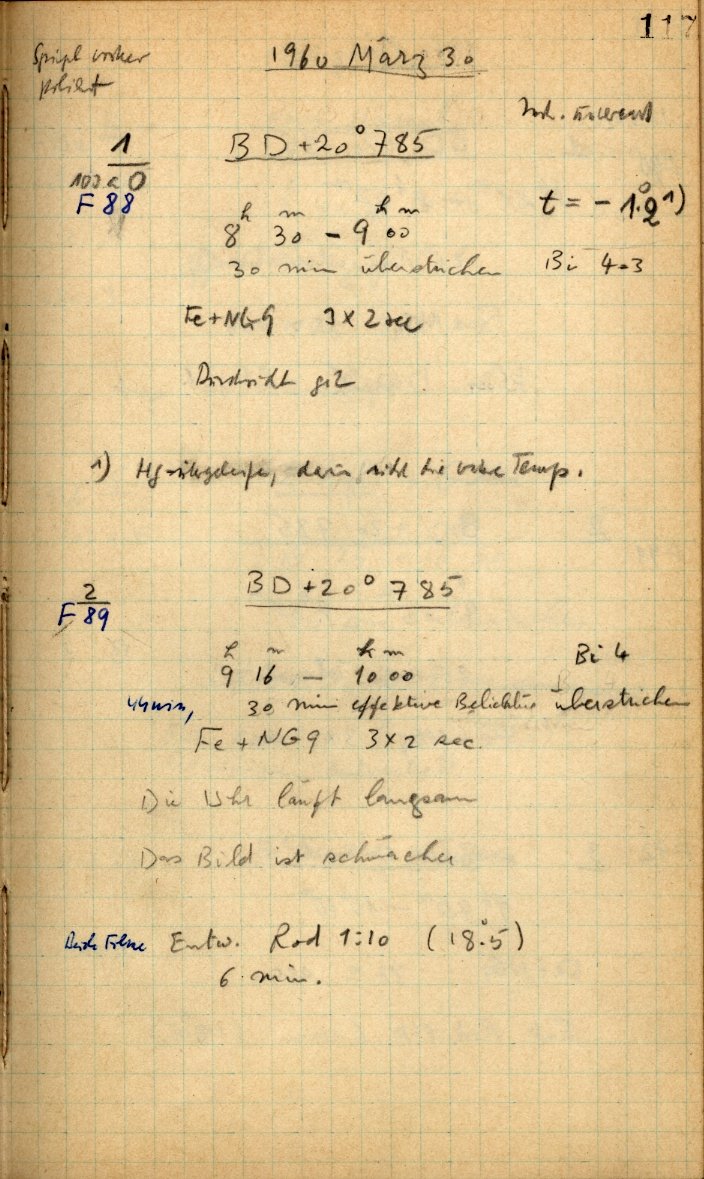 117
Spiegl vorher
poliert
1960 März 30
1
103 a O
F 88
BD +20° 785
t = - 1°.2 1)
h m h m
8 30 - 9 00
30 min überstrichen Bi 4-3
Fe+NG9 3 x 2 sec
Durchsicht gut
1) Hg- darin nicht die Temp.
2
F 89
BD +20° 785
h m h m
9 16 - 10 00
Bi 4
44 min, 30 min effektive überstrichen
Fe + NG9 3x2 sec.
Die Uhr läuft langsam
Das Bild ist schwächer
Beide Filme Entw. Rod 1:10 (18°.5)
6 min.